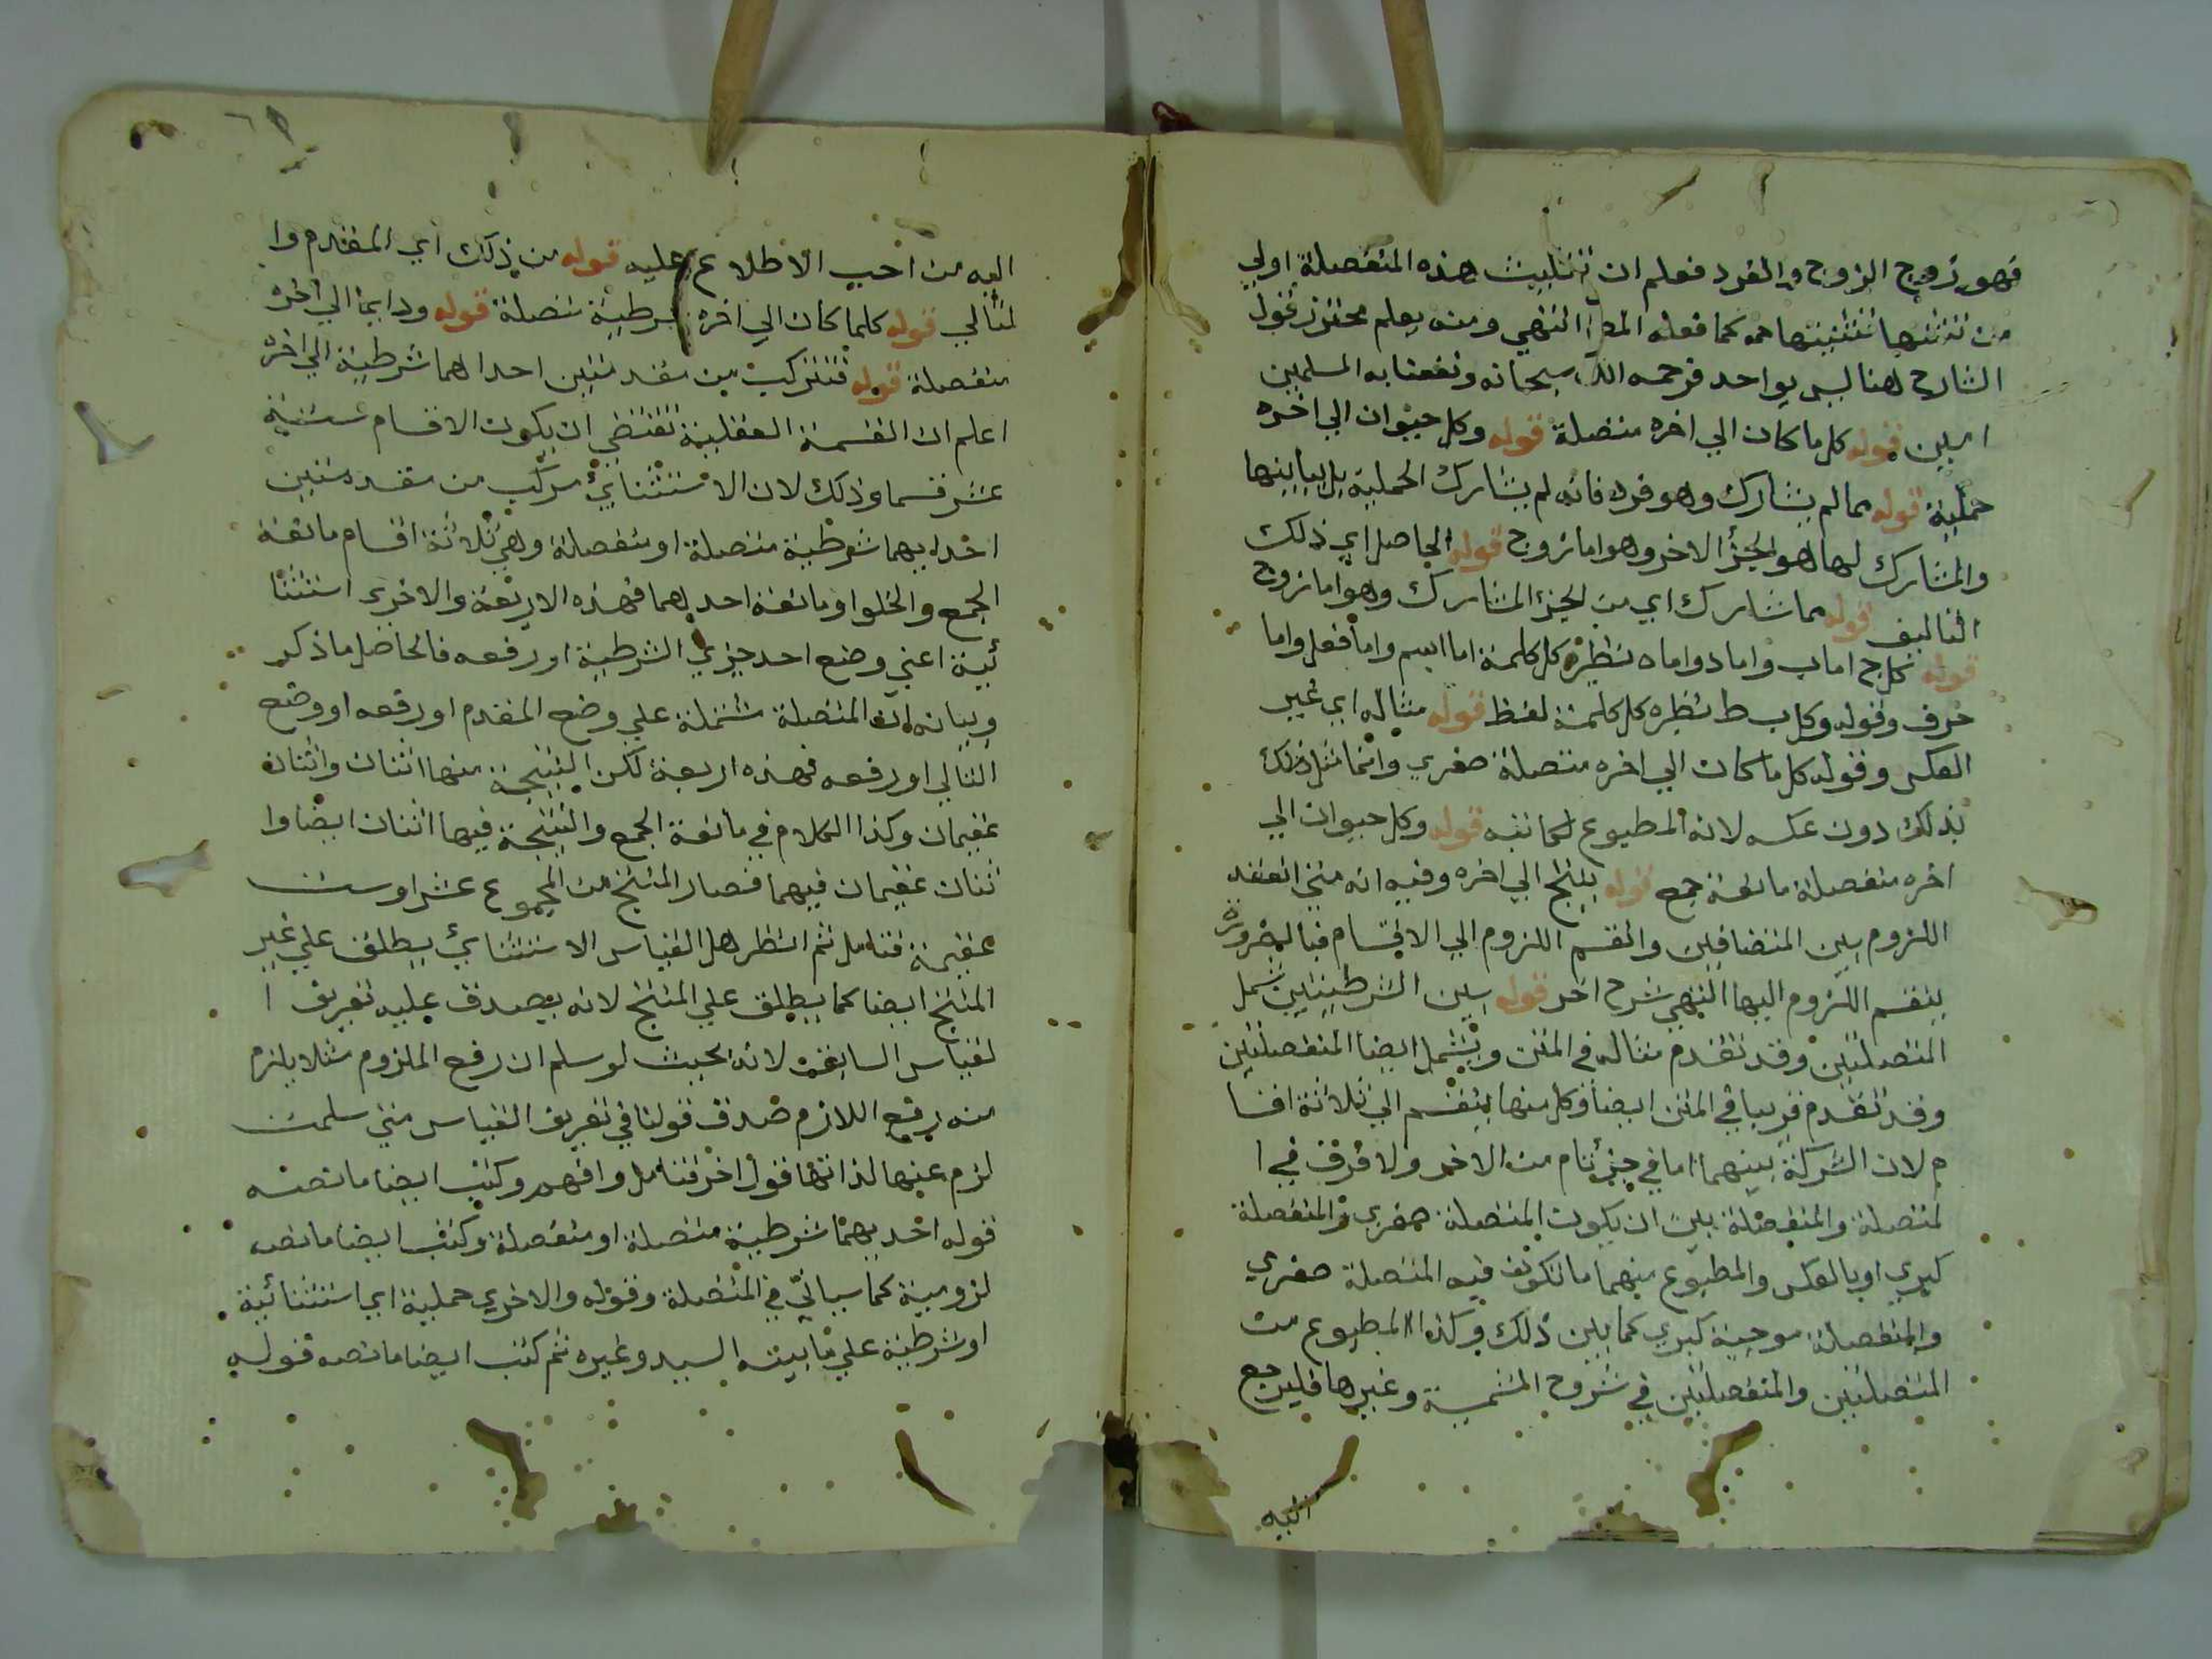 فهو زوج الزوج والفرد فعلم ان تثليث هذه المنفصلة اولي
من تثنيتها همه كما فعله المص انتهي ومنه يعلم محترز قول
الشارح هنا ليس بواحد فرحمه الله سبحانه ونفعنا به المسلمين
امين قوله كل ما كان الي اخره متصلة قوله وكل حيوان الي اخره
حملية قوله مما لم يشارك وهو فرد فانه لم يشارك الحملية بل يباينها
والمشارك لها هو الجزأ الاخر وهو اما زوج قوله الحاصل اي ذلك
التاليف قوله مما شارك اي من الجزء المشارك وهو اما زوج
قوله كل ج اما ب واما د واما ه نظيره كل كلمة اما اسم واما فعل واما
حرف وقوله وكل ب ط نظيره كل كلمة لفظ قوله مثاله اي غير
العكس وقوله كل ما كان الي اخره متصلة صغري وانما مثل ذلك
بذلك دون عكسه لانه المطبوع كما نبه قوله وكل حيوان الي
اخره منفصلة مانعة جمع قوله ينتج الي اخره وفيه انه متي انعقد
اللزوم بين المتضافين وانقسم اللزوم الي الاقسام فبالضرورة
ينقسم اللزوم اليها انتهي شرح اخر قوله بين الشرطيتين شمل
المتصلتين وقد تقدم مثاله في المتن ويشمل ايضا المنفصلتين
وقد تقدم قريبا في المتن ايضا وكل منها ينقسم الي ثلاثة اقسا
م لان الشركة بينهما اما في جزء تام من الاخر ولا فرق في ا
لمتصلة والمنفصلة بين ان يكون المتصلة صغري والمنفصلة
كبري او بالعكس والمطبوع منهما ما تكون فيه المتصلة صغري
والمنفصلة موجبة كبري كما بين ذلك وكذا المطبوع من
المتصلتين والمنفصلتين في شروح الشمسية وغيرها فليرجع
اليه
اليه من احب الاطلاع عليه قوله من ذلك اي المقدم وا
لتالي قوله كلما كان الي اخره شرطية متصلة قوله ودايما الي اخره
منفصلة قوله فتتركب من مقدمتين احداهما شرطية الي اخره
اعلم ان القسمة العقلية تقتضي ان يكون الاقسام ستة
عشر قسما وذلك لان الاستثنايئ مركب من مقدمتين
احداهما شرطية متصلة او منفصلة وهي ثلاثة اقسام مانعة
الجمع والخلو او مانعة احدهما فهذه الاربعة والاخري استثنا
ئية اعني وضع احد جزئي الشرطية او رفعه فالحاصل ما ذكر
وبيانه ان المتصلة مشتملة علي وضع المقدم او رفعه او وضع
التالي او رفعه فهذه اربعة لكن النتيجة منها اثنان واثنان
عقيمان وكذا الكلام في مانعة الجمع والنتيجة فيها اثنان ايضا وا
ثنان عقيمان فيهما فصار المنتج من المجموع عشر اوست
عقيمة فتامل ثم انظر هل القياس الاستثنايئ يطلق علي غير
المنتج ايضا كما يطلق علي المنتج لانه يصدق عليه تعريف ا
لقياس السابق لانه بحيث لو سلم ان رفع الملزوم مثلا يلزم
منه رفع اللازم صدق قولنا في تعريف القياس متي سلمت
لزم عنها لذاتها قول اخر فتامل وافهم وكتب ايضا ما نصه
قوله احديهما شرطية متصلة او منفصلة وكتب ايضا ما نصه
لزومية كما سياتي في المتصلة وقوله والاخري حملية اي استثنائية
او شرطية علي ما بينه السيد وغيره ثم كتب ايضا ما نصه قوله